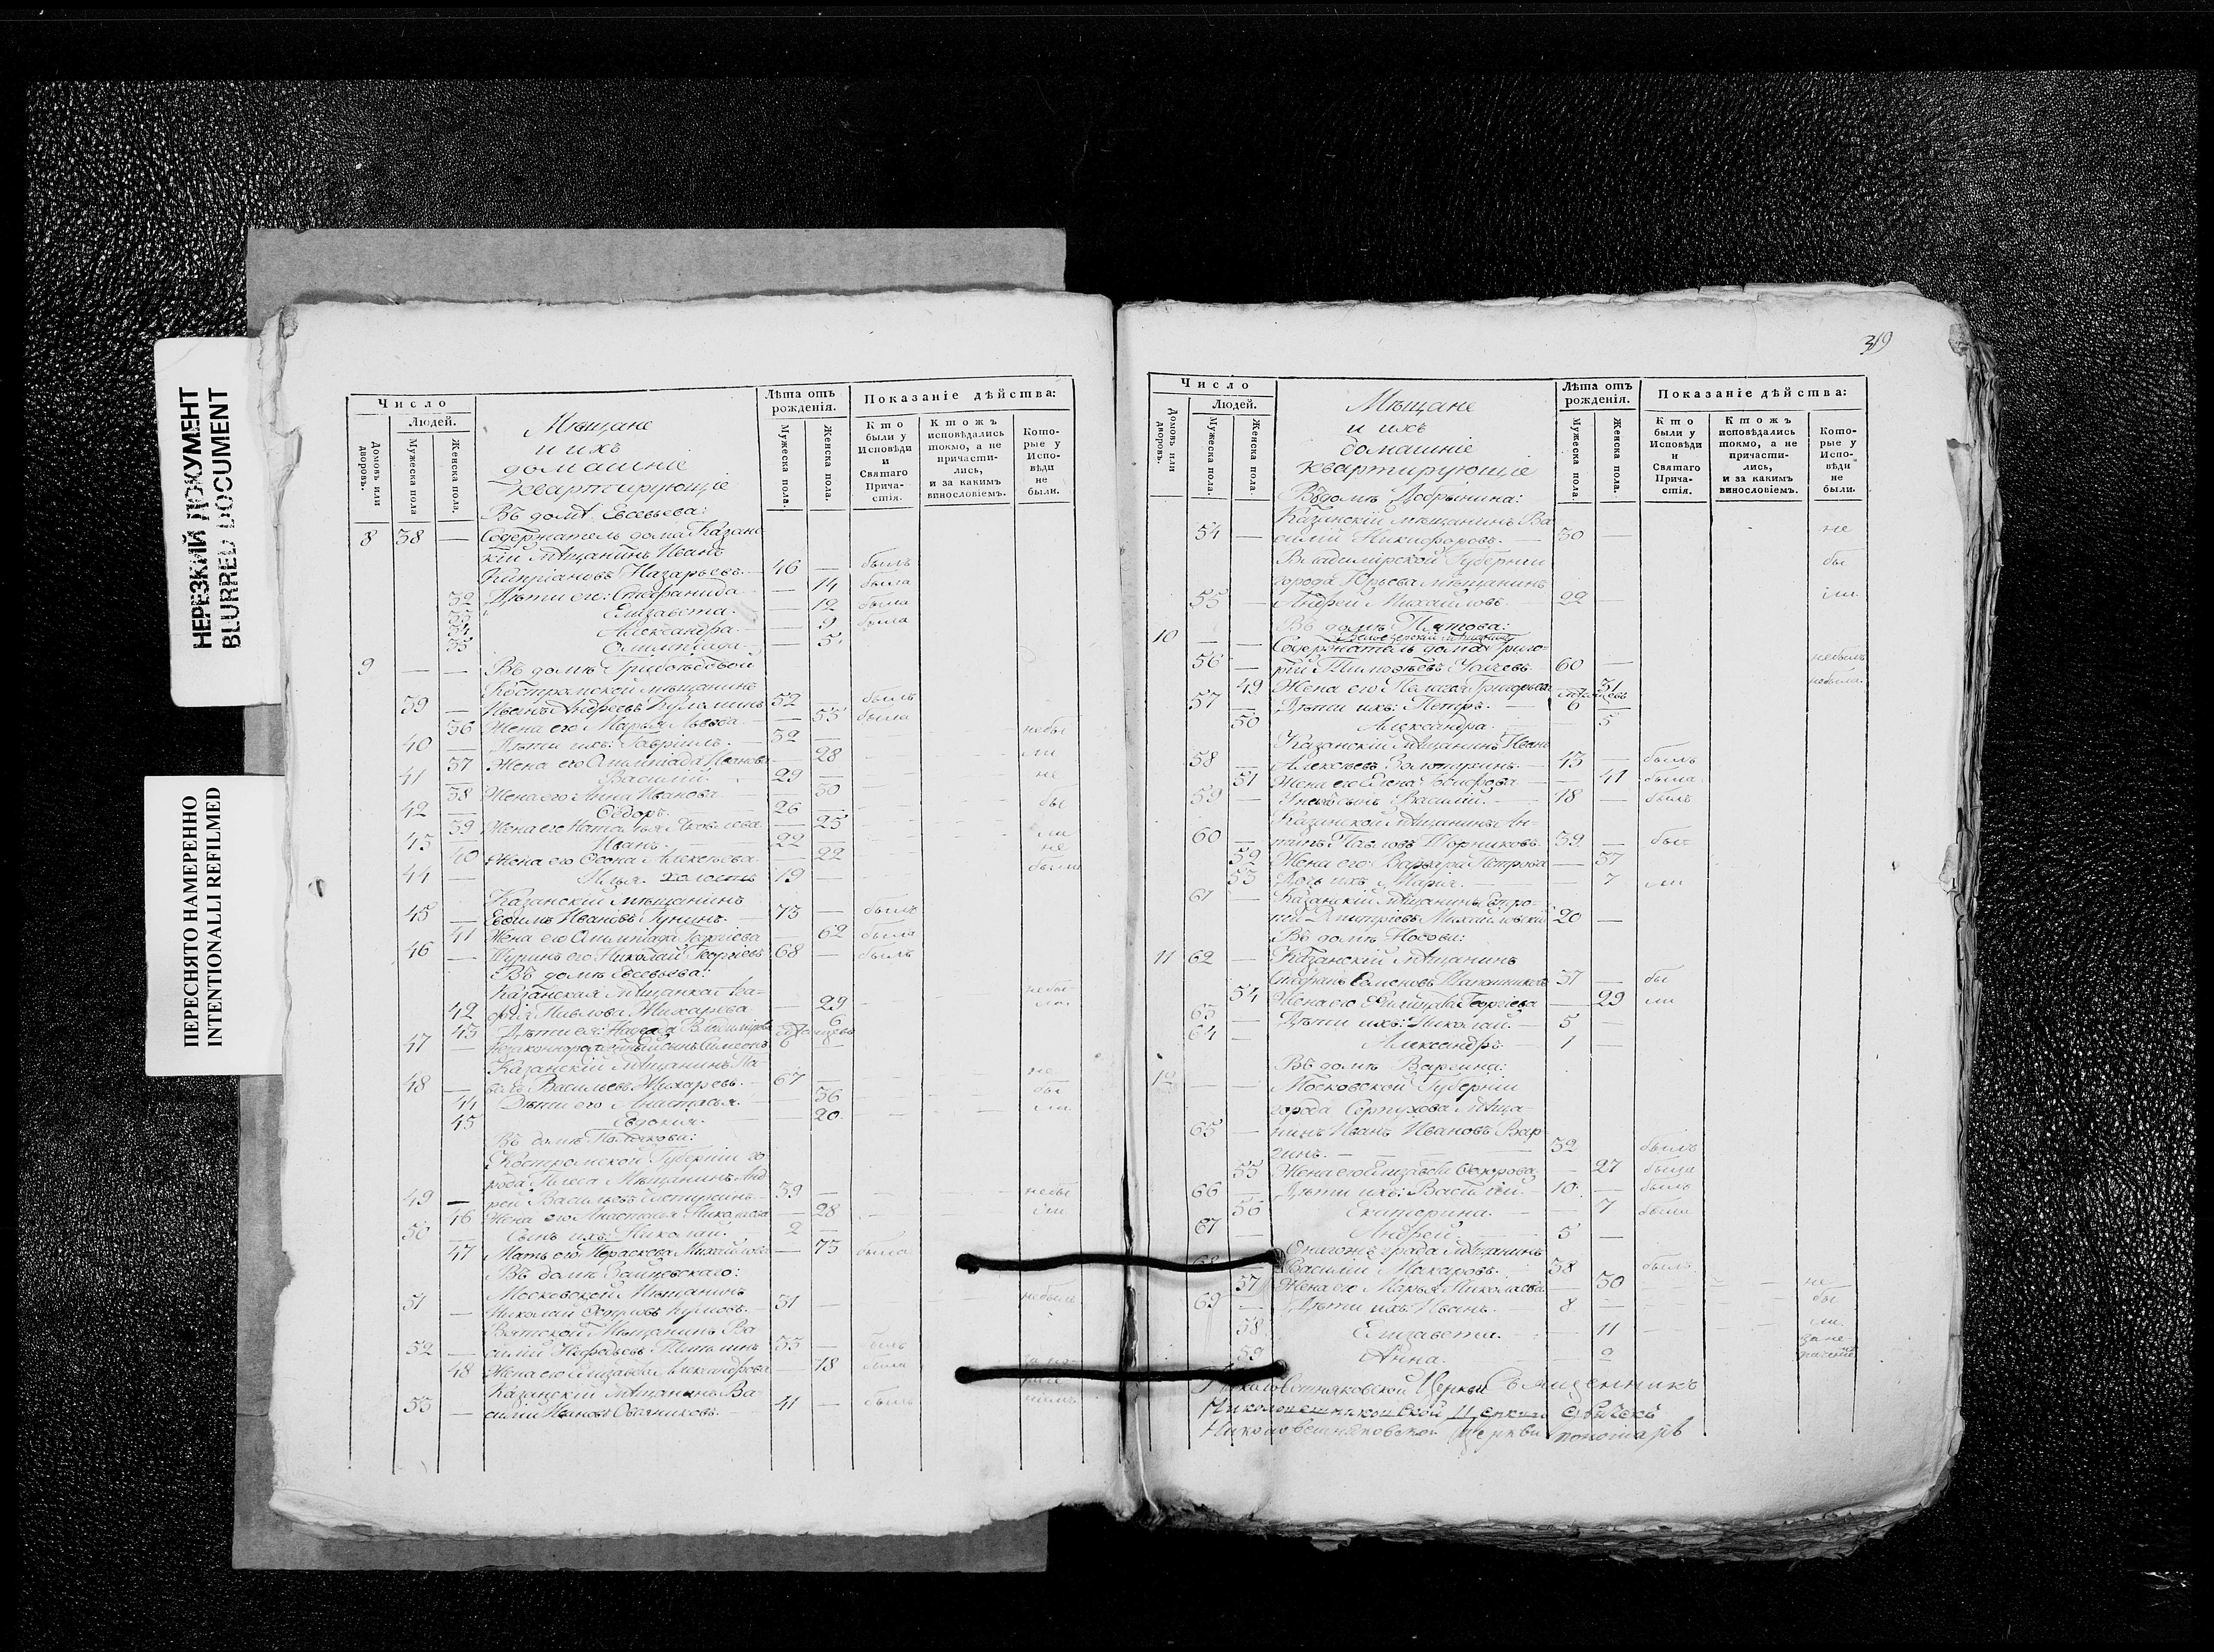 НЕРЕЗКИЙ ДОКУМЕНТ
BLURRED DOCUMENT
ПЕРЕСНЯТО НАМЕРЕННО
INTENTIONALLI REFILMED
Число
Людей.
Домовъ или дворовъ.
Мужеска пола
Женска пола.
Мѣщане
и ихъ
домашнiе
квартирующiе
Лѣта отъ рожденiя.
Мужеска пола.
Женска пола.
Показанiе дѣйства:
Кто были у Исповѣди и Святаго Причастiя.
Кто жъ исповѣдались токмо, а не причастились, и за какимъ винословiемъ.
Которые у Исповѣди не были.
Въ домѣ Евсевьева:
8 38 — Содержатель дома Казанс
кiй мѣщанинъ Иванъ
Киприановъ Назарьевъ. 46 — былъ
32 Дѣти его: Стефанида — 14 была
33 Елизавета. — 12 была
34 Александра. — 9 была
35 Олимпiада. — 5
9 — — Въ домѣ Грибоѣдовой
Костромской мѣщанинъ
39 — Иванъ Андреевъ 52 былъ
36 Жена его Марья Львова — 55 была
40 — Дѣти ихъ: Гаврiилъ. 32 — небы
37 Жена его Олимпiада Иванова — 28 ли
41 — Василiй. 29 — не
38 Жена его Анна Иванова — 30
42 — Ѳедоръ. 26 — бы
39 Жена его Наталья Яковлева — 25
43 — Иванъ. 22 — ли
40 Жена его Алексѣева — 22 не
44 — Илья холостъ 19 — были
Казанскiй мѣщанинъ
45 — Ивановъ Гунинъ. 73 — былъ
41 Жена его Олимпiада Георгiева — 62 была
46 — Шуринъ его Николай Георгiевъ 68 — былъ
Въ домѣ Евсевьева:
Казанская мѣщанка Ага- небы
42 фiя Павлова Жихарева — 29 ла
43 Дѣти ея: Надежда Владимiрова — 6
47 — Незаконнорожденный сынъ Симеонъ 6 — мѣсяцевъ
Казанскiй мѣщанинъ Па
48 — велъ Васильевъ Жихаревъ. 67 не
44 Дѣти его Анастасья. — 36 бы
45 Евдокия. — 20 ли
Въ домѣ Полякова:
Костромской Губернiи го
рода Плеса Мѣщанинъ Анд
49 — рей Васильевъ 39 — небы
46 Жена его Анастасья Николаева — 28 ли
50 — Сынъ ихъ: Николай. 2 —
47 Мать его Параскева Михайлова — 73 была
Въ домѣ Зайцевскаго:
Московской Мѣщанинъ
51 — Николай Петровъ 31 — небылъ
Вятской Мѣщанинъ Ва
52 — силiй 33 — былъ
48 Жена его Елизавета Александрова — 18 была
Казанскiй мѣщанинъ Ва-
53 — силiй Ивановъ Овчинниковъ. 41 — былъ
319
Число
Людей.
Домовъ или дворовъ.
Мужеска пола.
Женска пола.
Мѣщане
и ихъ
домашнiе
квартирующiе
Лѣта отъ рожденiя.
Мужеска пола.
Женска пола.
Показанiе дѣйства:
Кто были у Исповѣди и Святаго Причастiя.
Кто жъ исповѣдались токмо, а не причастились, и за какимъ винословiемъ.
Которые у Исповѣди не были.
Въ домѣ Добрынина:
Казанскiй мѣщанинъ Ва
54 — силiй Никифоровъ. 30 — не
Владимiрской Губернiи бы
города Юрьева мѣщанинъ
55 — Андрей Михайловъ 22 — ли
Въ домѣ Пятова:
10 — — Содержатель дома Григо-
56 — рiй Тимофѣевъ 60 — небылъ
49 Жена его Пелагея Григорьева — 31 небыла
57 — Дѣти ихъ: Петръ. 6 мѣсяцевъ —
50 Александра. — 5
Казанскiй мѣщанинъ Иванъ
58 — Алексѣевъ Золотухинъ 43 — былъ
51 Жена его Елена — 41 была
59 — сынъ Василiй. 18 — былъ
Казанской мѣщанинъ Ан-
60 — Павловъ Шорниковъ. 39 — бы
52 Жена его Варвара Петрова — 37
53 Дочь ихъ Марiя. — 7 ли
61 — Казанскiй мѣщанинъ
Дмитрiевъ Михайловскiй 20 —
Въ домѣ Носова:
11 62 — Казанскiй мѣщанинъ
Стефанъ Семеновъ Шапошниковъ 37 — бы
54 Жена его Георгiева — 29 ли
63 — Дѣти ихъ: Николай. 5 —
64 — Александръ. 1 —
Въ домѣ Варгина:
12 — — Московской Губернiи
города Серпухова мѣща-
65 — нинъ Иванъ Ивановъ Вар
гинъ. 32 былъ
55 Жена его Елизавета Ѳедорова — 27 была
66 — Дѣти ихъ: Василiй. 10 — былъ
56 Екатерина. — 7 была
67 — Андрей. 5 —
Онагожъ града мѣщанинъ
68 — Василiй Макаровъ. 38 былъ
57 Жена его Марья Николаева — 30 не
69 — Дѣти ихъ: Иванъ. 8 — бы
58 Елизавета. — 11 ли
59 Анна. — 2
Церкви Священникъ
Николовешняковской Церкви пономарь